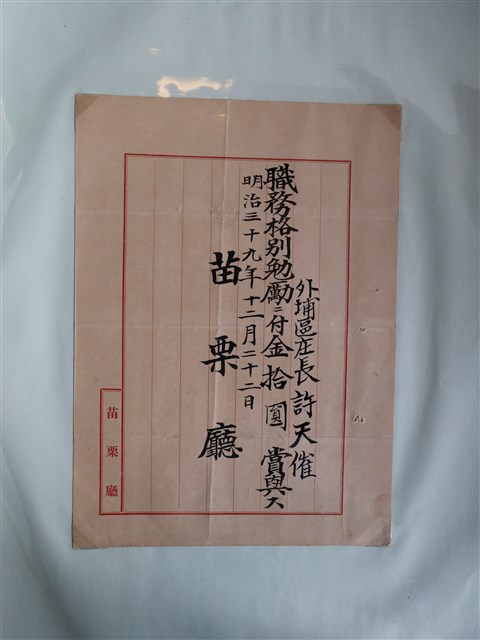 外埔區庄長 許天催
職務格別勉勵ニ付金拾圓賞與ス
明治三十九年十二月二十二日
苗栗廳
苗栗廳